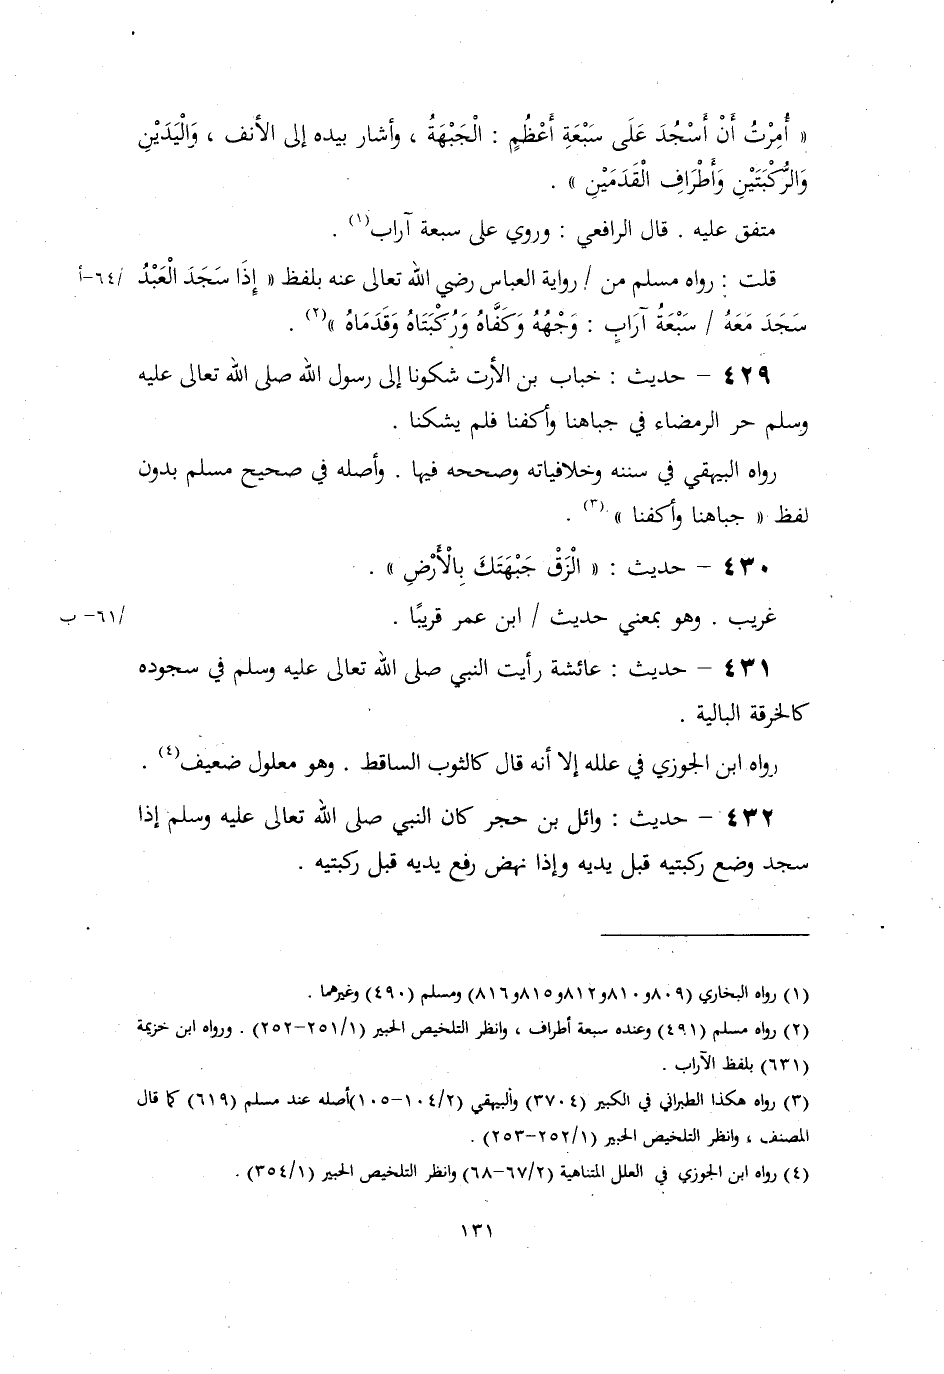 « أُمِرْتُ أَنْ أَسْجُدَ عَلَى سَبْعَةِ أَعْظُمٍ : الْجَبْهَةُ ، وأشار بيده إلى الأنف ، وَالْيَدَيْنِ
وَالرُّكْبَتَيْنِ وَأَطْرَافِ الْقَدَمَيْنِ » .
متفق عليه . قال الرافعي : وروي على سبعة آراب(١) .
قلت : رواه مسلم من / رواية العباس رضي الله تعالى عنه بلفظ « إِذَا سَجَدَ الْعَبْدُ /٦٤-أ
سَجَدَ مَعَهُ / سَبْعَةُ آرَابٍ : وَجْهُهُ وَكَفَّاهُ وَرُكْبَتَاهُ وَقَدَمَاهُ »(٢) .
٤٢٩ - حديث : خباب بن الأرت شكونا إلى رسول الله صلى الله تعالى عليه
وسلم حر الرمضاء في جباهنا وأكفنا فلم يشكنا .
رواه البيهقي في سننه وخلافياته وصححه فيها . وأصله في صحيح مسلم بدون
لفظ « جباهنا وأكفنا »(٣) .
٤٣٠ - حديث : « الْزَقْ جَبْهَتَكَ بِالْأَرْضِ » .
غريب . وهو بمعني حديث / ابن عمر قريبًا . /٦١- ب
٤٣١ - حديث : عائشة رأيت النبي صلى الله تعالى عليه وسلم في سجوده
كالخرقة البالية .
رواه ابن الجوزي في علله إلا أنه قال كالثوب الساقط . وهو معلول ضعيف(٤) .
٤٣٢ - حديث : وائل بن حجر كان النبي صلى الله تعالى عليه وسلم إذا
سجد وضع ركبتيه قبل يديه وإذا نهض رفع يديه قبل ركبتيه .
(١) رواه البخاري (٨٠٩و٨١٠و٨١٢و٨١٥و٨١٦) ومسلم (٤٩٠) وغيرهما .
(٢) رواه مسلم (٤٩١) وعنده سبعة أطراف ، وانظر التلخيص الحبير (٢٥١/١-٢٥٢) . ورواه ابن خزيمة
(٦٣١) بلفظ الآراب .
(٣) رواه هكذا الطبراني في الكبير (٣٧٠٤) والبيهقي (١٠٤/٢-١٠٥)أصله عند مسلم (٦١٩) كما قال
المصنف ، وانظر التلخيص الحبير (٢٥٢/١-٢٥٣) .
(٤) رواه ابن الجوزي في العلل المتناهية (٦٧/٢-٦٨) وانظر التلخيص الحبير (٣٥٤/١) .
١٣١